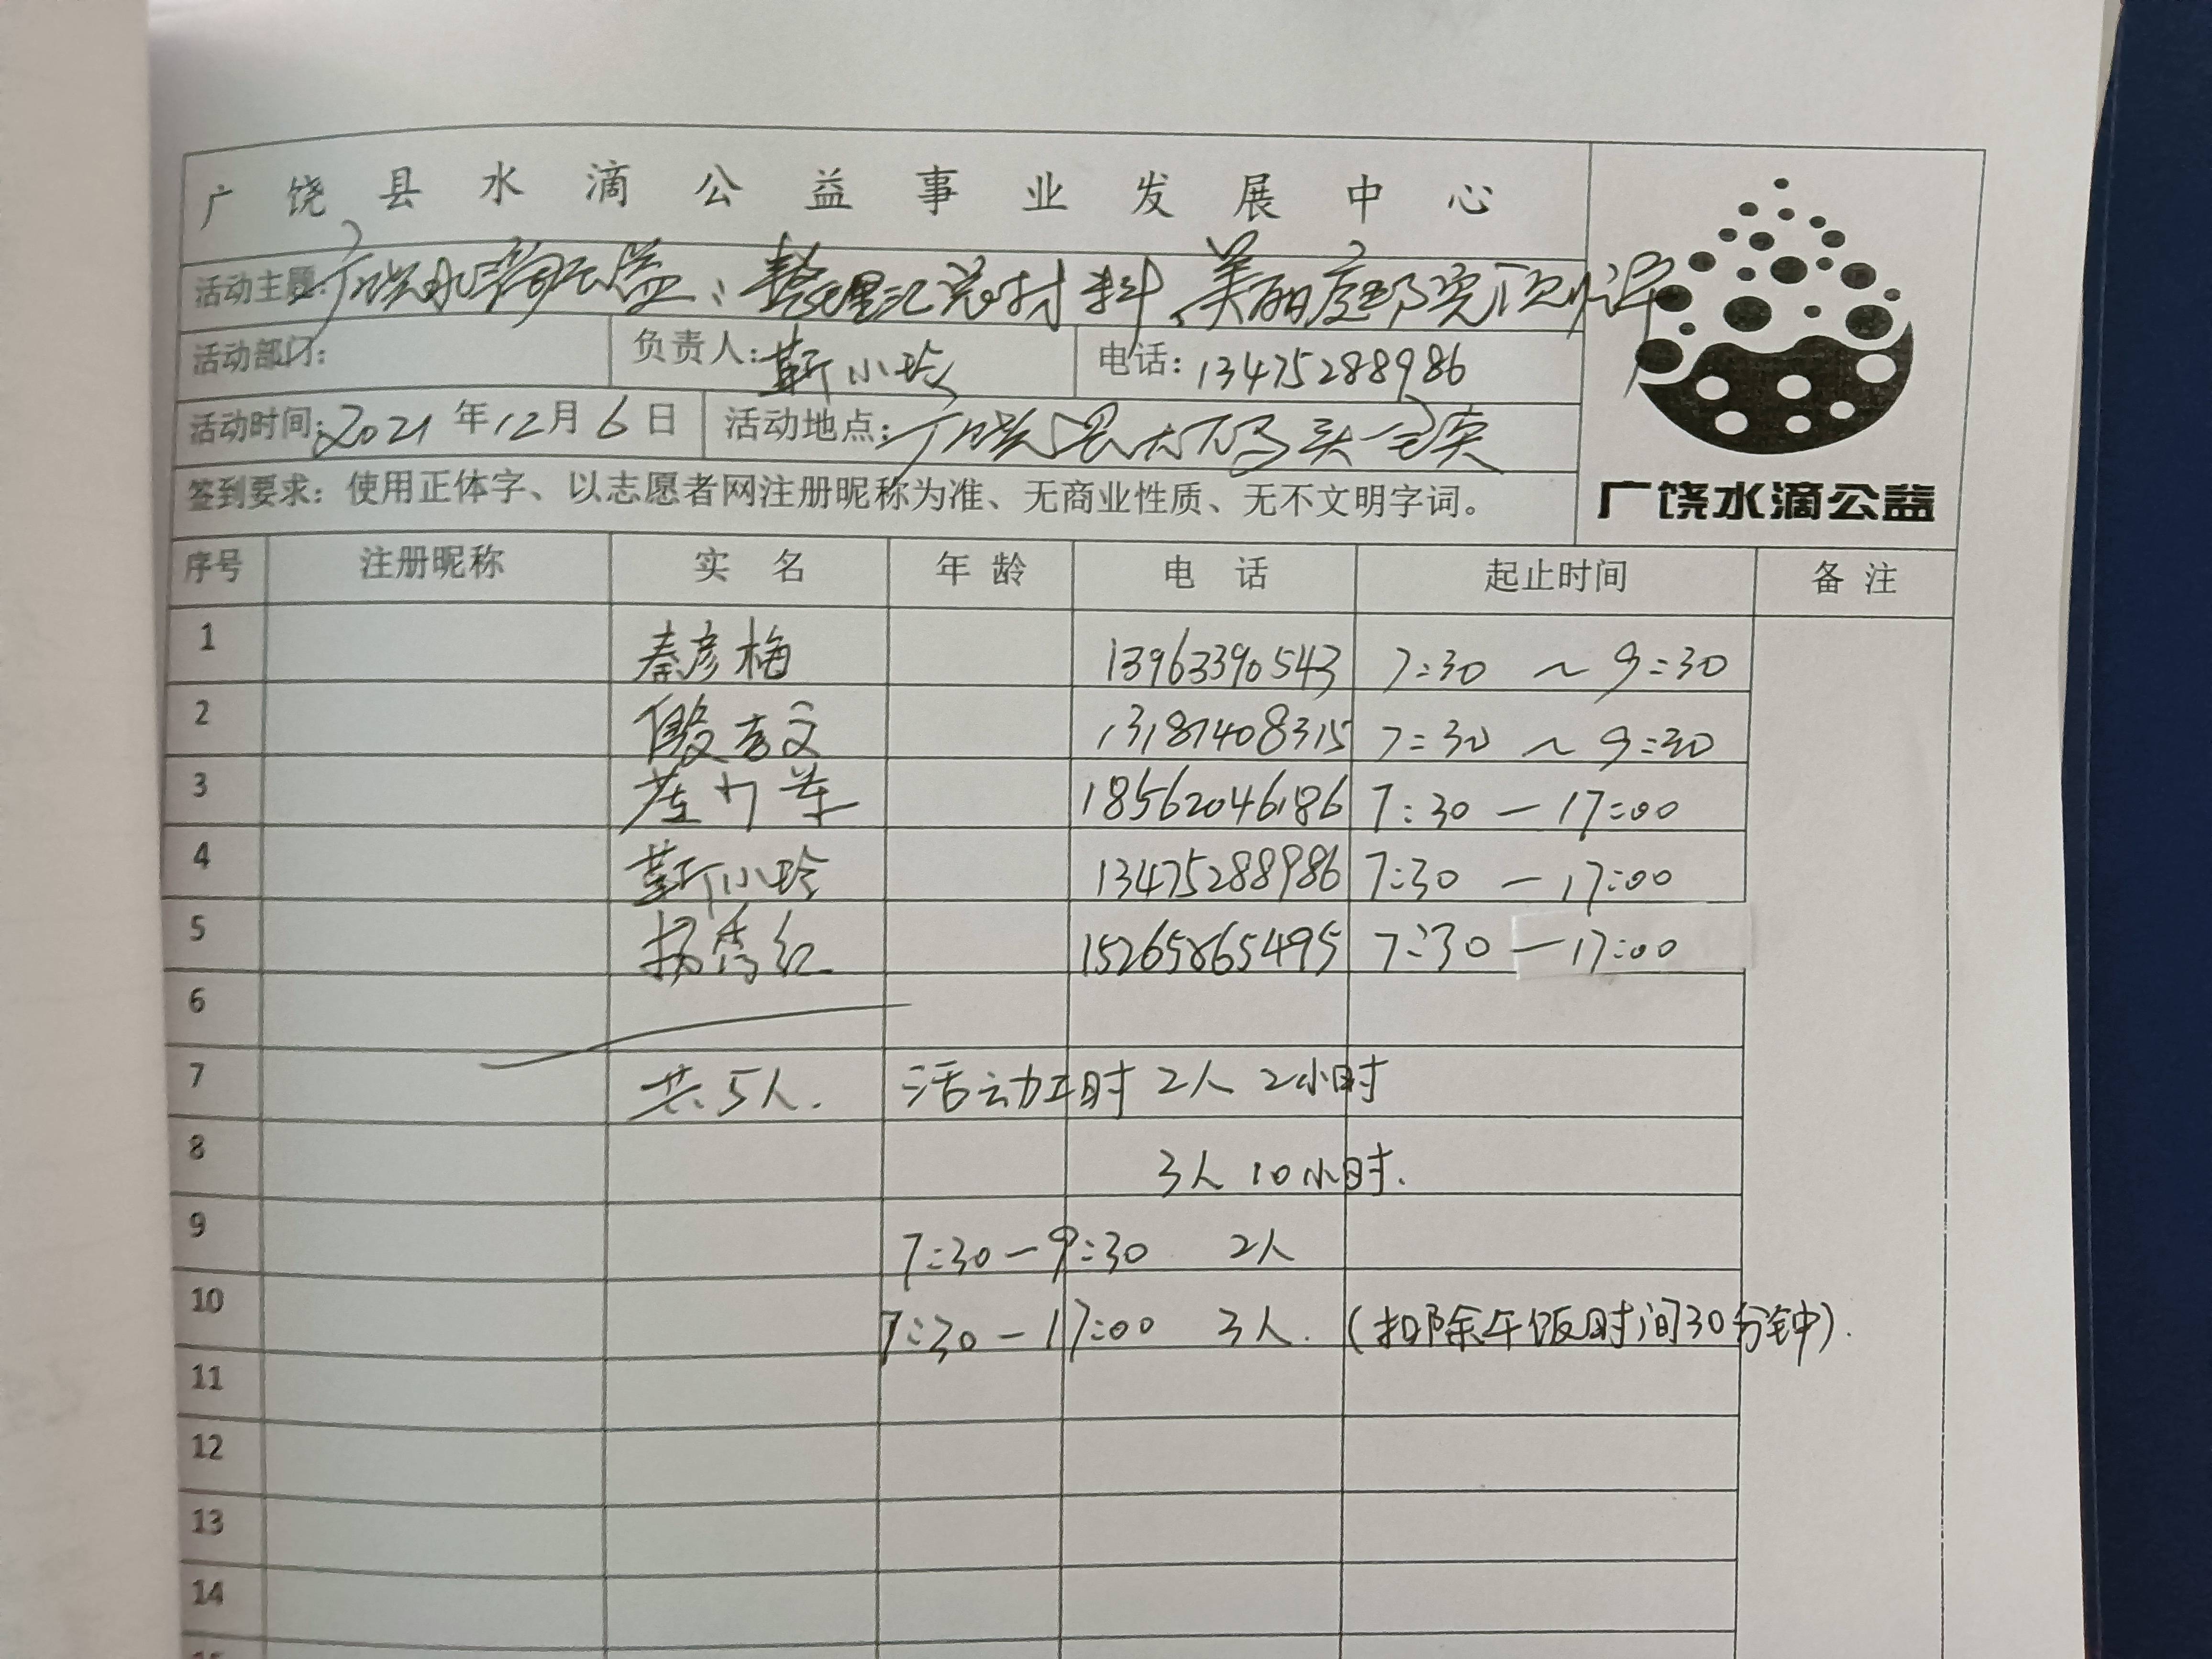 广饶县水滴公益事业发展中心
活动主题:广饶水滴公益:整理汇总材料、美丽庭院
活动部门:
负责人:靳小玲
电话:13475288986
活动时间:2021年12月6日
活动地点:广饶县大码头
签到要求:使用正体字、以志愿者网注册昵称为准、无商业性质、无不文明字词。
广饶水滴公益
序号 注册昵称 实名 年龄 电话 起止时间 备注
1 秦彦梅 13963390543 7:30 ~ 9:30
2 13187408315 7:30 ~ 9:30
3 18562046186 7:30 — 17:00
4 靳小玲 13475288986 7:30 — 17:00
5 杨秀红 15265865495 7:30 — 17:00
6
7 共5人. 活动工时 2人 2小时
8 3人 10小时.
9 7:30—9:30 2人
10 7:30—17:00 3人. (扣除午饭时间30分钟).
11
12
13
14